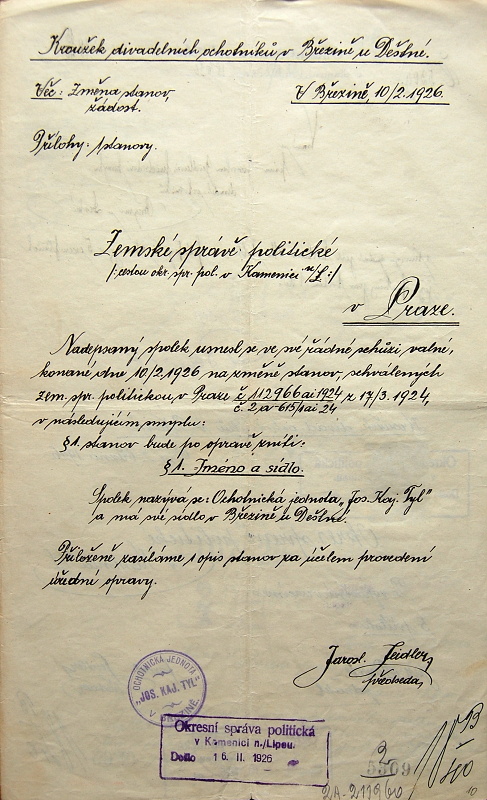 Kroužek divadelních ochotníků v Březině u Deštné.
Věc: Změna stanov,
žádost.
V Březině, 10/2. 1926.
Přílohy: 1 stanovy.
Zemské správě politické
/: cestou okr. spr. pol. v Kamenici n/L :/
v Praze.
Nadepsaný spolek usnesl se ve své řádné schůzi valné,
konané dne 10/2. 1926 na změně stanov, schválených
zem. spr. politickou v Praze č 112966 ai 1924 z 17/3. 1924,
č. 2/a-615/1 ai 24
v následujícím smyslu:
§ 1. stanov bude po opravě zníti:
§ 1. Jméno a sídlo.
Spolek nazývá se: Ochotnická jednota „Jos. Kaj. Tyl"
a má své sídlo v Březině u Deštné.
Přiloženě zasíláme 1 opis stanov za účelem provedení
úřední opravy.
Jarosl. Zeidler,
předseda,
OCHOTNICKÁ JEDNOTA
„JOS. KAJ. TYL"
V BŘEZINĚ.
Okresní správa politická
v Kamenici n./Lipou.
Došlo 16. II. 1926
2
5509
2A-211960
10